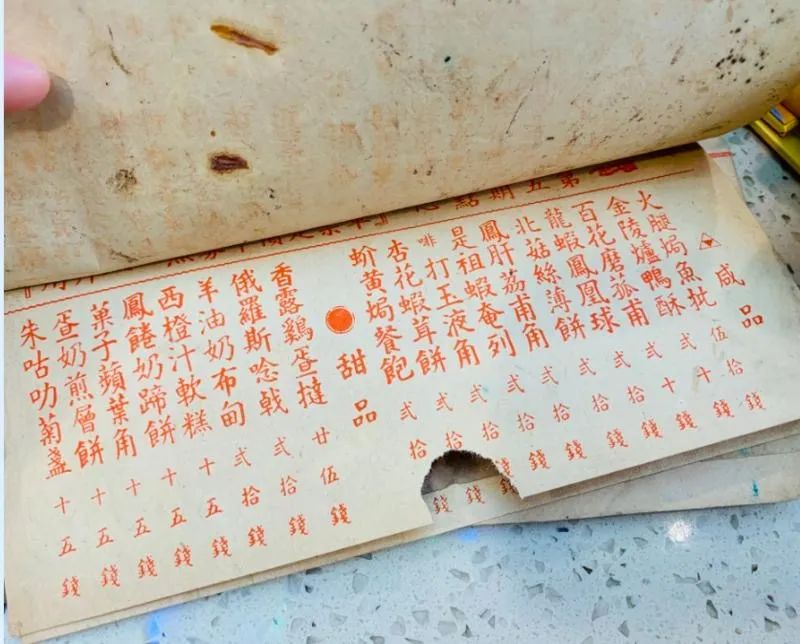 第五期點心
咸品
火腿焗魚批 伍拾錢
金陵爐鴨酥 弍十錢
百花磨菰甫 弍十錢
龍蝦鳳凰球 弍拾錢
北菇絲薄餅 弍拾錢
鳳肝荔甫角 弍拾錢
是祖蝦奄列 弍拾錢
啡打玉液角 弍拾錢
杏花蝦茸餅 弍拾錢
蚧黃焗餐飽 弍拾錢
甜品
香露鷄蛋撻 廿伍錢
俄羅斯唸戟 弍拾錢
羊油奶布甸 弍拾錢
西橙汁軟糕 十五錢
鳳饒奶蹄餅 十五錢
菓子蘋葉角 十五錢
蛋奶煎層餅 十五錢
朱咕叻菊盞 十五錢